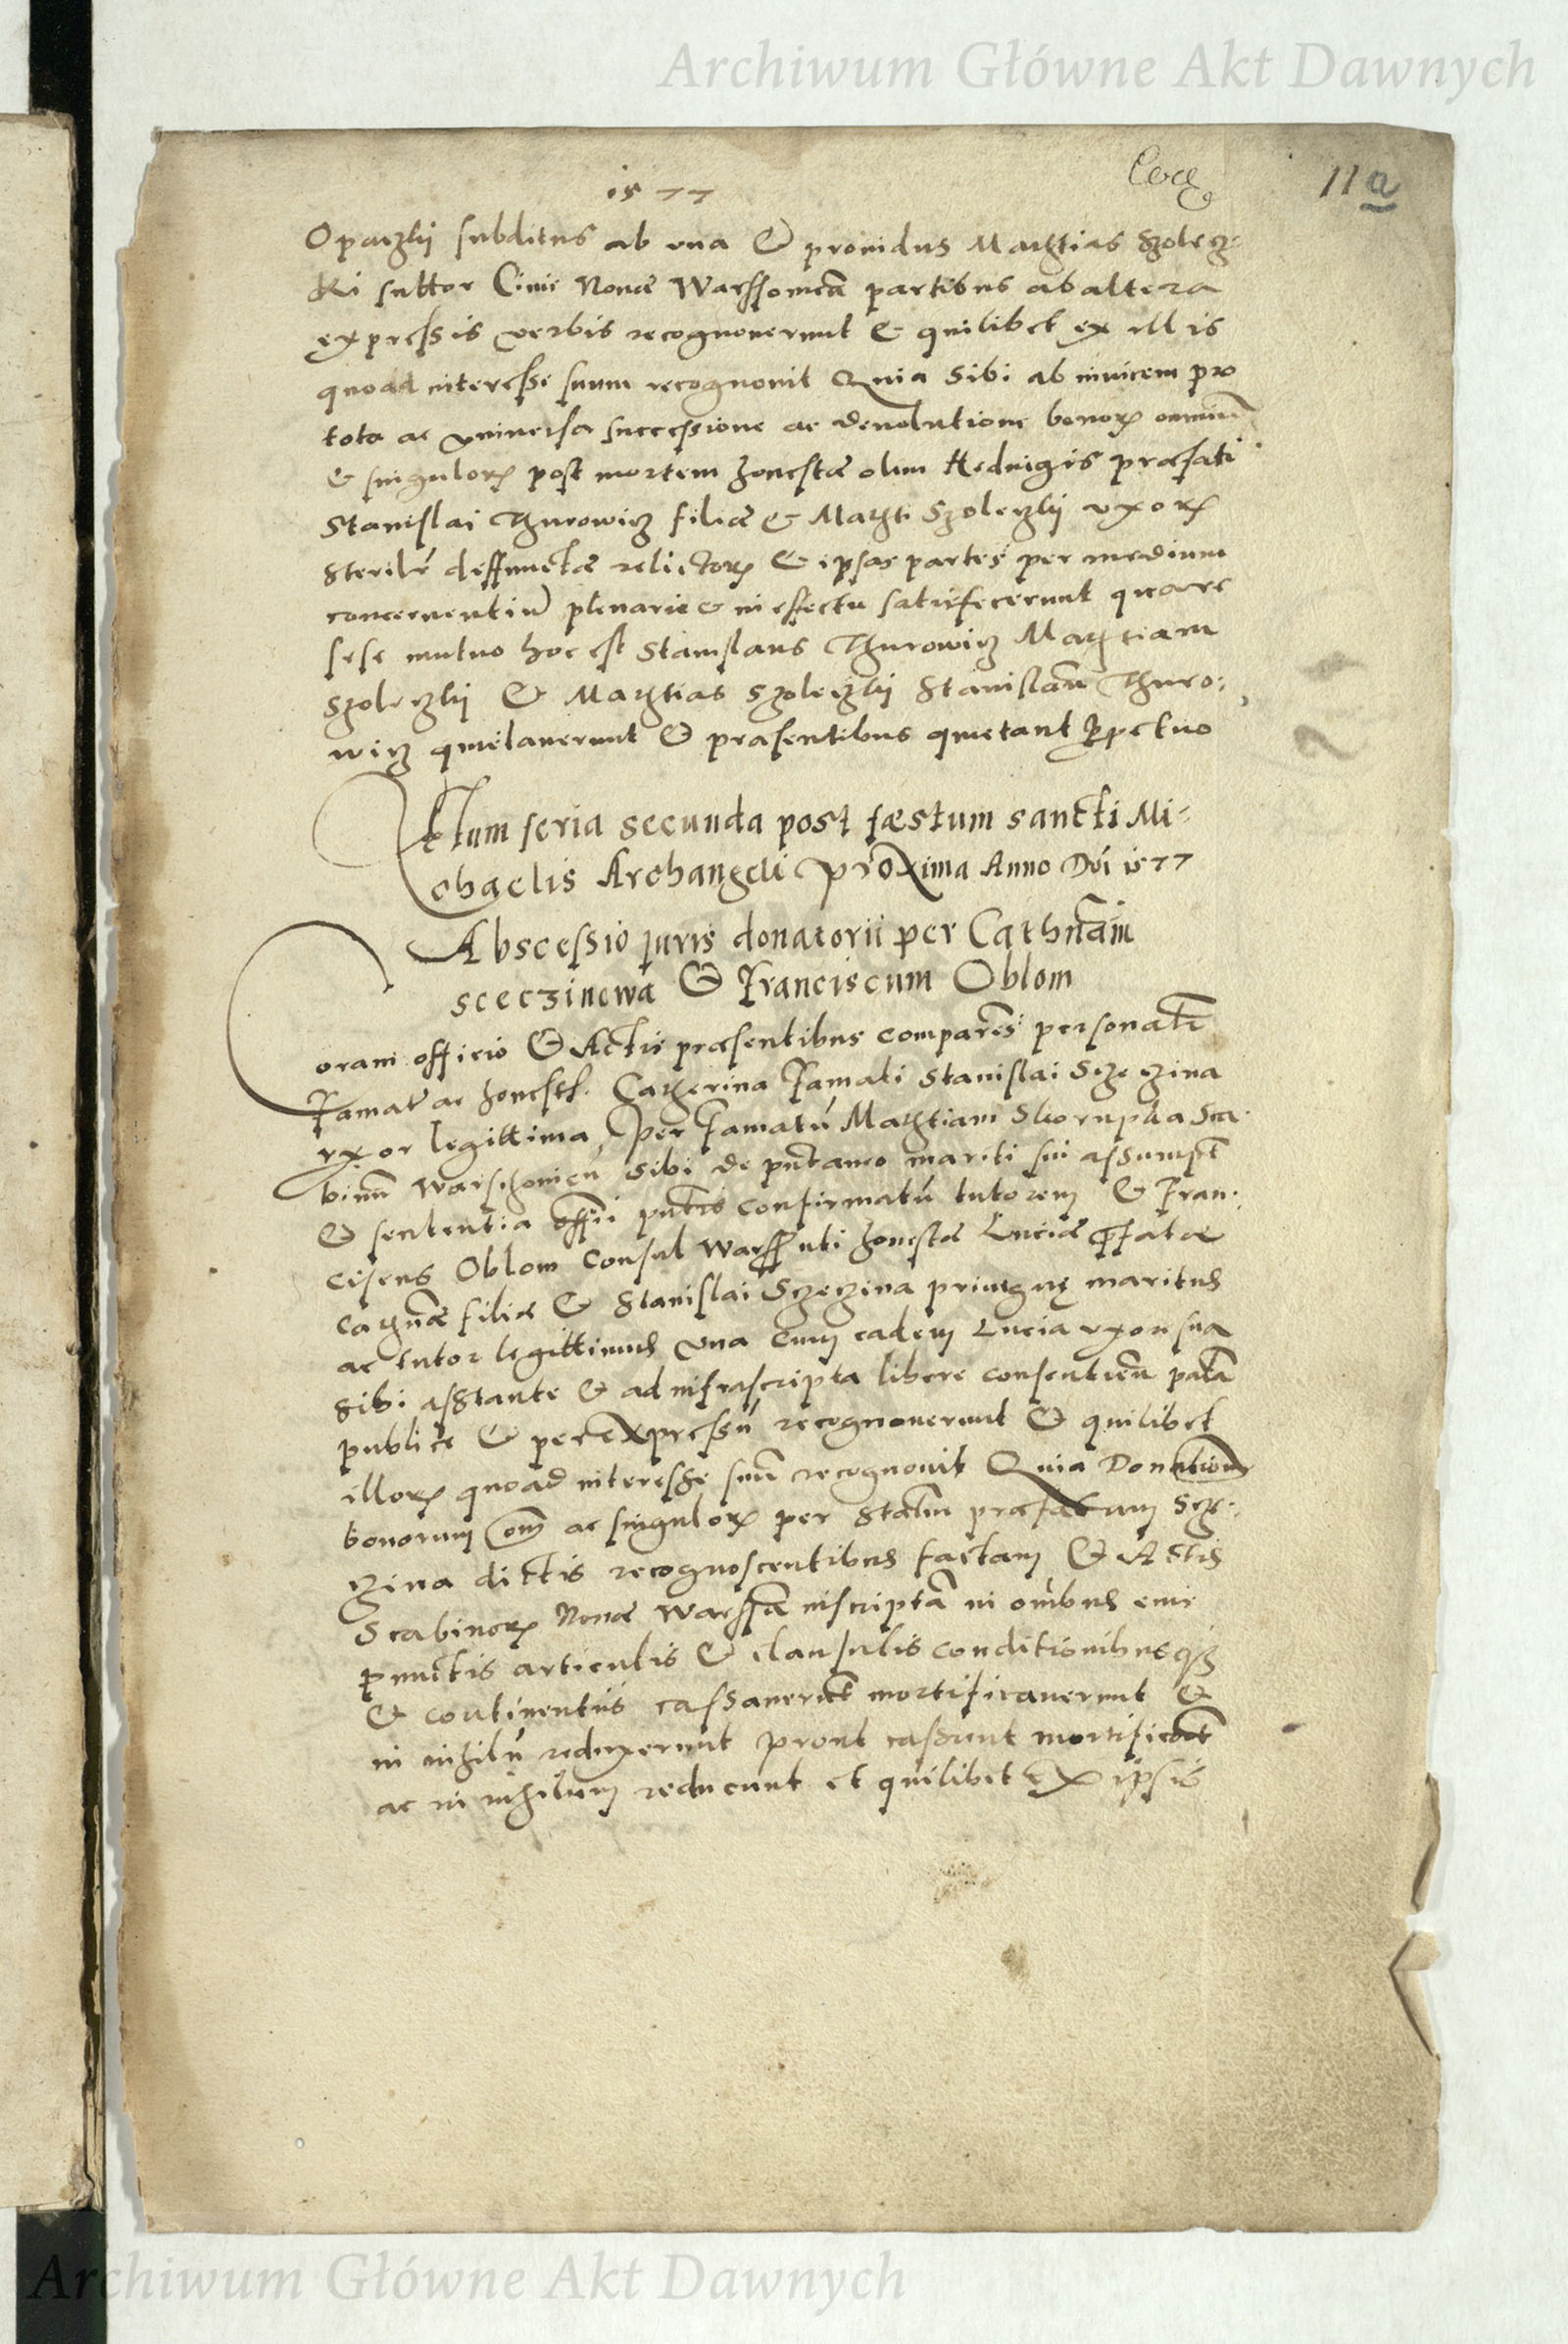 Archiwum Główne Akt Dawnych
11a
1577
Opaczkij subditus ab vna & prouidus Mathias Szolecz-
ki suttor Ciuis Nouæ Warssouieñ partibus ab altera
expressis verbis recognouerunt & quilibet ex illis
quoad interesse suum recognouit Quia sibi ab inuicem pro
tota ac vniuersa successione ac deuolutione bonorꝝ omniū
& singulorꝝ post mortem honestæ olim Heduigis præfati
Stanislai Thurowicz filiæ & Mathi Szoleczkij vxorꝝ
steriłr deffunctæ relictorꝝ & ipsas partes per medium
concernentiū plenarie & in effectu satisfecerunt quare
sese mutuo hoc est Stanislaus Thurowicz Mathiam
Szoleczkij & Mathias Szoleczkij Stanislaū Thuro:
wicz quietauerunt & præsentibus quietant ꝑpetuo
Actum feria secunda post fæstum sancti Mi-
chaelis Archangeli proxima Anno Dñi 1577
Abscessio juris donatorii per Cathñam
sceczinowa & Franciscum Oblom
Coram officio & Actis præsentibus compareñ personałr
Famata ac honesta Catherina Famati Stanislai Sczeczina
vxor legittima per Famatū Mathiam Skorupka Sca-
binū Warschouieñ sibi de pñtaneo mariti sui assumpt
& sententia offii pñtis confirmatū tutorem & Fran-
ciscus Oblom Consul Warss uti honestæ Luciæ p̄fatæ
Cathñæ filiæ & Stanislai Sczeczina priuignę maritus
ac tutor legittimus vna cum eadem Lucia vxore sua
sibi asstante & ad infrascripta libere consentieñ palã
publice & per expressū recognouerunt & quilibet
illorꝝ quoad interesse suū recognouit Quia Donationẽ
bonorum oim̄ ac singulorꝝ per Stałm præfatum Scze-
czina dictis recognoscentibus factam & Actis
Scabinorꝝ Nouæ Warssã inscriptã in oibus eius
punctis articulis & clausulis conditionibusqꝫ
& continentiis cassauerunt mortificauerunt &
in nihilū reduxerunt prout cassant mortificant
ac in nihilum reducunt et quilibet ex ipsis
Archiwum Główne Akt Dawnych